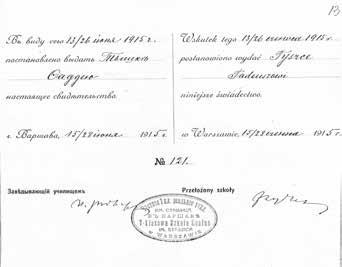 13
Въ виду сего 13/26 іюня 1915 г.
постановлено выдать Тышкѣ
Фаддею
настоящее свидѣтельство.
г. Варшава, 15/28 іюня 1915 г.
Wskutek tego 13/26 czerwca 1915 r.
postanowiono wydać Tyszce
Tadeuszowi
niniejsze świadectwo.
w Warszawie, 15/28 czerwca 1915 r.
№ 121.
Завѣдывающій училищемъ
Przełożony szkoły
ВЪ ВАРШАВѢ
7-klasowa Szkoła Realna
w WARSZAWIE